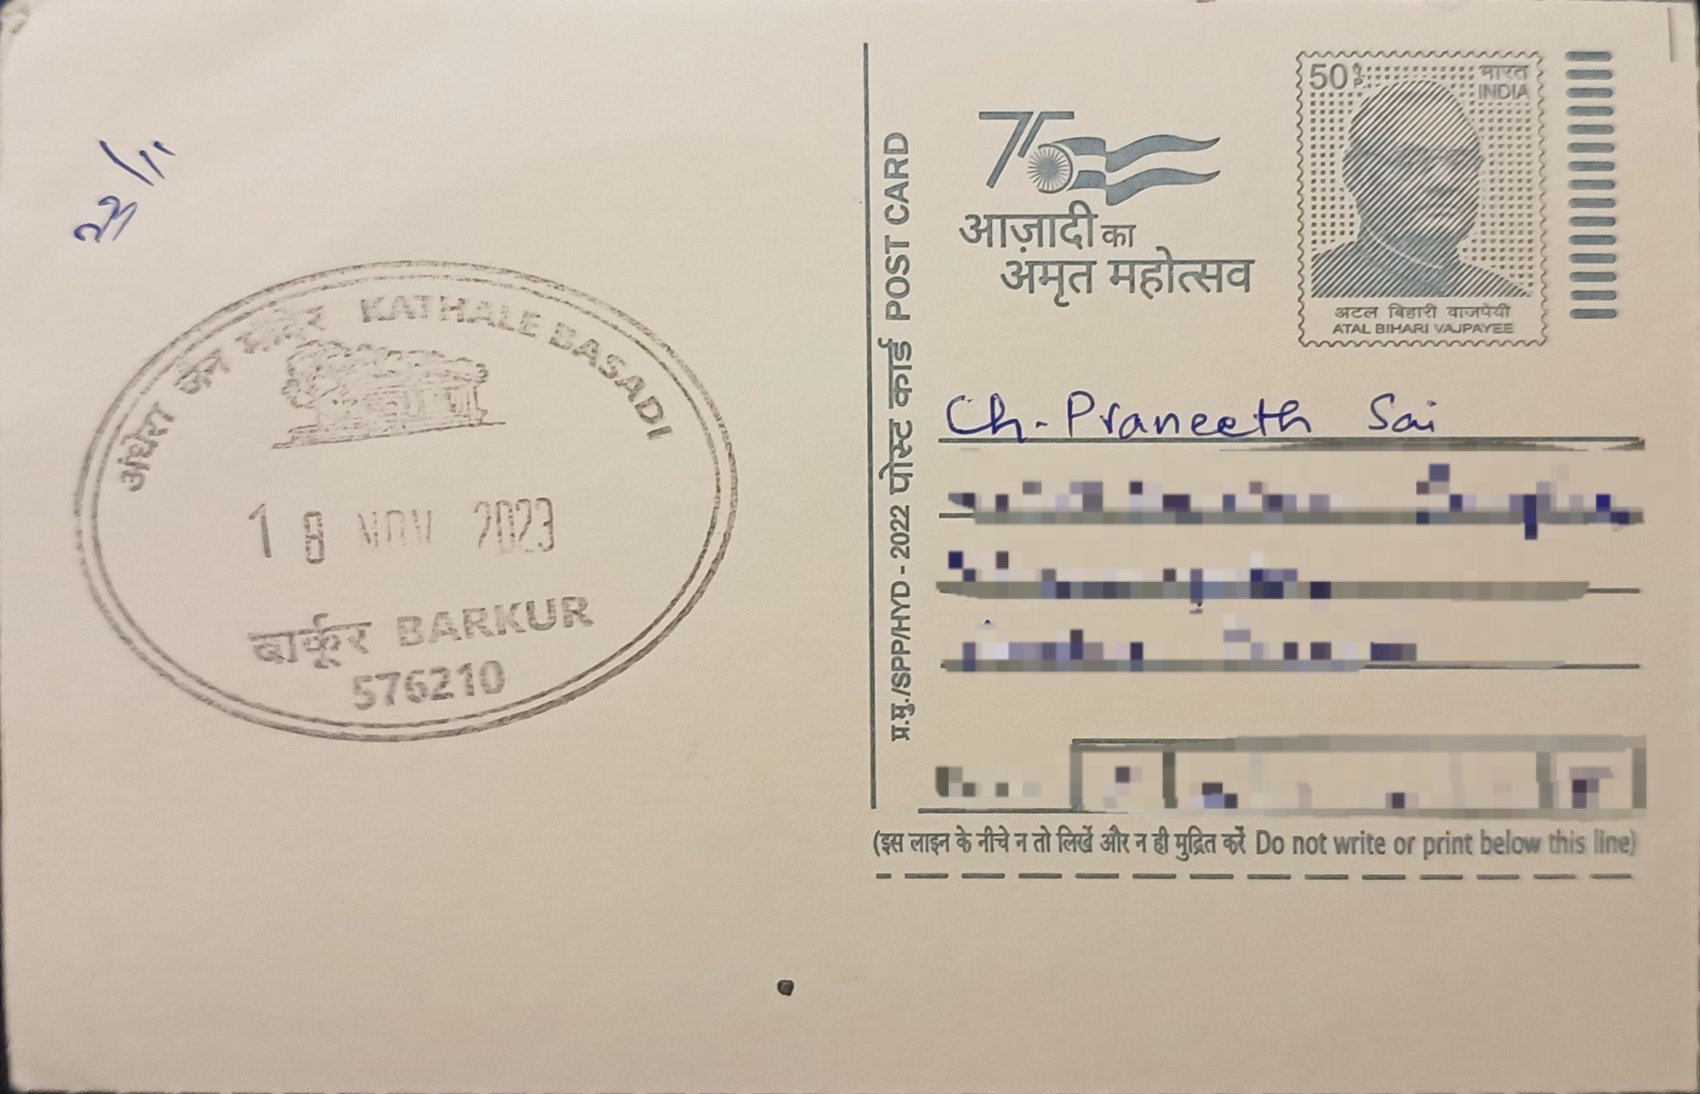 22/11
अंधेरा जैन मंदिर KATHALE BASADI
18 NOV 2023
बार्कूर BARKUR
576210
प्र.मु./SPP/HYD - 2022 पोस्ट कार्ड POST CARD
75
आज़ादी का
अमृत महोत्सव
50 पै. भारत
INDIA
अटल बिहारी वाजपेयी
ATAL BIHARI VAJPAYEE
Ch. Praneeth Sai
(इस लाइन के नीचे न तो लिखें और न ही मुद्रित करें Do not write or print below this line)